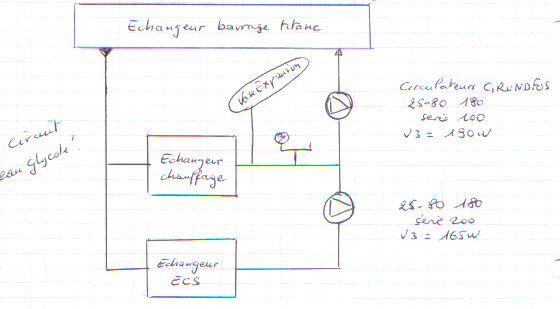 Echangeur bavrage titane
Vase Expansion
Circulateurs GRUNDFOS
25-80 180
serie 100
V3 = 190W
Circuit
eau glycolé
Echangeur
chauffage
25-80 180
serie 200
V3 = 165W
Echangeur
ECS